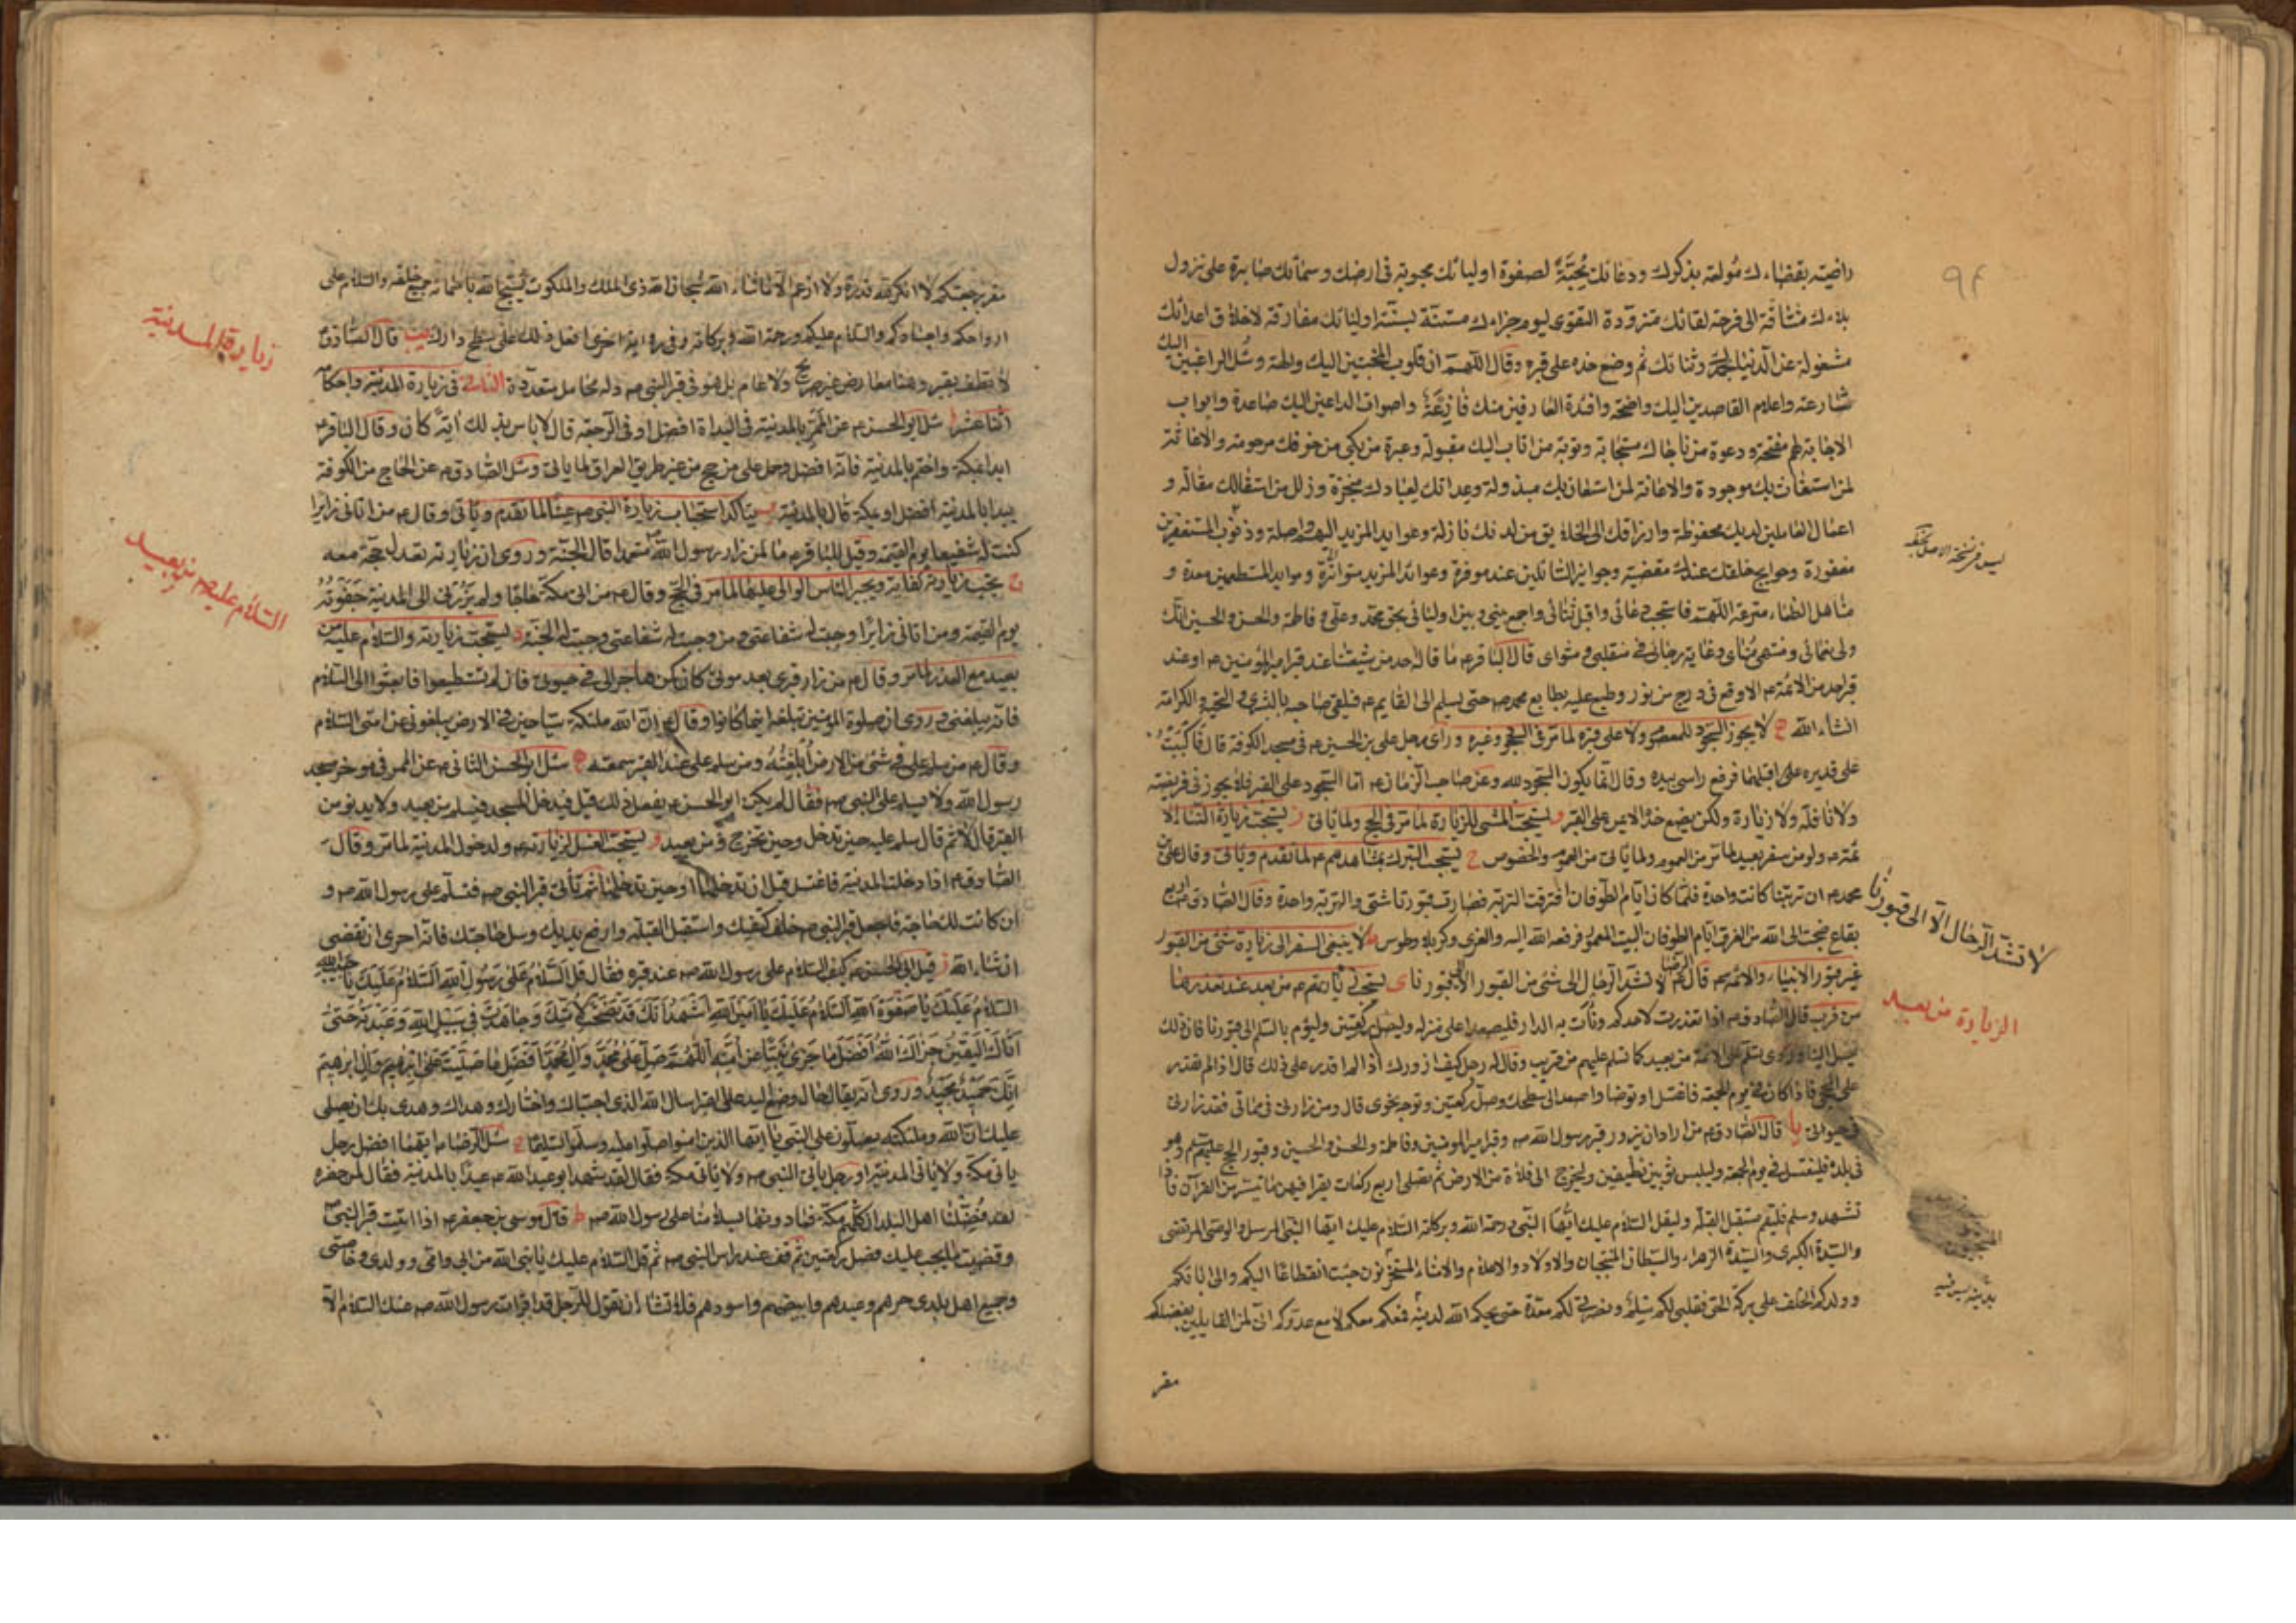 ٩٤
راضية بقضاءك مُولعة بذكرك ودعائك مُحِبَّةً لصفوة اوليائك محبوبة فى ارضك وسمائك صابرة على نزول
بلاءك مشتاقة الى فرحة لقائك متزودة التقوى ليوم جزاءك مستنّة بسنّة اوليائك مفارقة لاخلاق اعدائك
مشغولة عن الدنيا بحمدك وثنائك ثم وضع خده على قبره وقال اللهم ان قلوب المخبتين اليك والهة وسُبل الراغبين اليك
شارعة واعلام القاصدين اليك واضحة وافئدة العارفين منك فازِعَةٌ واصوات الداعين اليك صاعدة وابواب
الاجابة لهم مفتحة ودعوة من ناجاك مستجابة وتوبة من اناب اليك مقبولة وعبرة من بكى من خوفك مرحومة والاغاثة
لمن استغاث بك موجودة والاعانة لمن استعان بك مبذولة وعداتك لعبادك منجزة وزلل من استقالك مقالة و
اعمال العاملين لديك محفوظة وارزاقك الى الخلائق من لدنك نازلة وعوايد المزيد اليهم واصلة وذنوب المستغفرين
مغفورة وحوايج خلقك عندك مقضية وجوايز السائلين عندك موفرة وعوائد المزيد متواترة وموايد المستطعمين معدة و
مناهل الظماء مترعة اللهم فاستجب دعائى واقبل ثنائى واجمع بينى وبين اوليائى بحق محمد وعلى وفاطمة والحسن والحسين انك
ولى نعمائى ومنتهى مُناى وغاية رجائى فى منقلبى ومثواى قال الباقر ع ما قاله احد من شيعتنا عند قبر امير المؤمنين ع او عند
قبر احد من الائمة ع الا وقع فى درج من نور وطبع عليه بطابع محمد ص حتى يسلم الى القايم ع فيلقى صاحبه بالبشرى والتحية والكرامة
انشاء الله لا يجوز السجود للمعصوم ولا على قبره لما مر فى السجود وغيره وراى رجل على بن الحسين ع فى مسجد الكوفة قال فاكببتُ
على قدميه اقبلهما فرفع راسى بيده وقال انما يكون السجود لله وعن صاحب الزمان ع اما السجود على القبر فلا يجوز فى فريضة
ولا نافلة ولا زيارة ولكن يضع خده الايمن على القبر و يستحب المشى للزيارة لما مر فى الحج ولما ياتى ز يستحب زيارة النساء
ولو من سفر بعيد لما مر من العموم ولما ياتى من العموم والخصوص ح يستحب التبرك بمشاهدهم ع لما تقدم وياتى وقال على بن
محمد ع ان تربتنا كانت واحدة فلما كان ايام الطوفان افترقت التربة فصارت قبورنا شتى والتربة واحدة وقال الصادق ع اربع
بقاع ضجت الى الله من الغرق ايام الطوفان البيت المعمور فرفعه الله اليه والغرى وكربلا وطوس ط لا ينبغى السفر الى زيارة شئ من القبور
غير قبور الانبياء والائمة ع قال الرضا ع لا تشد الرحال الى شئ من القبور الا الى قبورنا ى يستحب زيارتهم ع من بعد عند تعذرها
من قرب قال الصادق ع اذا تعذرت لاحدكم ونأت به الدار فليصعد اعلى منزله وليصل ركعتين وليؤم بالسلام الى قبورنا فان ذلك
يصل الينا وروى يسلم على الائمة من بعيد كما تسلم عليهم من قريب وقال له رجل كيف ازورك اذا لم اقدر على ذلك قال اذا لم تقدر
على المجئ فاذا كان فى يوم الجمعة فاغتسل او توضا واصعد الى سطحك وصل ركعتين وتوجه نحوى قال ومن زارنى فى مماتى فقد زارنى
فى حيوتى يا قال الصادق ع من اراد ان يزور قبر رسول الله ص وقبر امير المومنين وفاطمة والحسن والحسين وقبور الحجج عليهم السلام وهو
فى بلده فليغتسل فى يوم الجمعة وليلبس ثوبين نظيفين وليخرج الى فلاة من الارض ثم يصلى اربع ركعات يقرا فيهن ما تيسر من القرآن فاذا
تشهد وسلم فليقم مستقبل القبلة وليقل السلام عليك ايها النبى ورحمة الله وبركاته السلام عليك ايها النبى المرسل والوصى المرتضى
والسيدة الكبرى والسيدة الزهراء والسبطان المنتجبان والاولاد والاعلام والامناء المستخزنون جئت انقطاعا اليكم والى ابائكم
وولدكم الخلف على بركة الحق فقلبى لكم سلم ونصرتى لكم معدة حتى يحكم الله لدينه فمعكم معكم لا مع عدوكم انى لمن القايلين بفضلكم
مقر
ليس فى نسخة الاصل
لا تشد الرحال الا الى قبورنا
الزيارة من بعيد
مقر برجعتكم لا انكر لله قدرة ولا ازعم الا ما شاء الله سبحان الله ذى الملك والملكوت يسبح الله باسمائه جميع خلقه والسلام على
ارواحكم واجسادكم والسلام عليكم ورحمة الله وبركاته وفى رواية اخرى افعل ذلك على سطح دارك يب قال الصادق ع
لا تطف بقبر وهنا معارض غير صريح ولا عام بل هو فى قبر النبى ص وله محامل متعددة الثانى فى زيارة المدينة واحكام
اثنا عشر ا سئل ابو الحسن ع عن الممر بالمدينة فى البداة افضل او فى الرجعة قال لا باس بذلك ايّة كان وقال الباقر ع
ابدا بمكة واختم بالمدينة فانه افضل وحمل على من حج من غير طريق العراق لما ياتى وسئل الصادق ع عن الحاج من الكوفة
يبدا بالمدينة افضل او بمكة قال بالمدينة ب يتاكد استحباب زيارة النبى ص عينا لما تقدم وياتى وقال ص من اتانى زايرا
كنت له شفيعا يوم القيمة وقيل للباقر ع ما لمن زار رسول الله ص متعمدا قال الجنة وروى ان زيارته تعدل حجة معه
ج تجب زيارته كفاية ويجبر الناس الوالى عليها لما مر فى الحج وقال ص من اتى مكة حاجا ولم يزرنى الى المدينة جفوته
يوم القيمة ومن اتانى زايرا وجبت له شفاعتى ومن وجبت له شفاعتى وجبت له الجنة د يستحب زيارته والسلام عليه من
بعيد مع العذر لما مر وقال ص من زار قبرى بعد موتى كان كمن هاجر الى فى حيوتى فان لم تستطيعوا فابعثوا الى السلام
فانه يبلغنى وروى ان صلوة المؤمنين تبلغه اينما كانوا وقال ص ان لله ملئكة سياحين فى الارض يبلغونى عن امتى السلام
وقال ص من سلم على فى شئ من الارض اُبلِغتُه ومن سلم على عند القبر سمعته ه سئل ابو الحسن الثانى ع عن الممر فى مؤخر مسجد
رسول الله ولا يسلم على النبى ص فقال لم يكن ابو الحسن ع يفعل ذلك قيل فيدخل المسجد فيسلم من بعيد ولا يدنو من
القبر قال لا ثم قال سلم عليه حين تدخل وحين تخرج ومن بعيد و يستحب الغسل لزيارته ص ولدخول المدينة لما مر وقال
الصادق ع اذا دخلت المدينة فاغتسل قبل ان تدخلها او حين تدخلها ثم تأتى قبر النبى ص فتسلم على رسول الله ص و
ان كانت لك حاجة فاجعل قبر النبى ص خلف كتفيك واستقبل القبلة وارفع يديك وسل حاجتك فانه احرى ان تقضى
ان شاء الله ز قيل لابى الحسن ع كيف السلام على رسول الله ص عند قبره فقال قل السلام على رسول الله السلام عليك يا حبيب الله
السلام عليك يا صفوة الله السلام عليك يا امين الله اشهد انك قد نصحت لامتك وجاهدت فى سبيل الله وعبدته حتى
اتاك اليقين جزاك الله افضل ما جزى نبيا عن امته اللهم صل على محمد وال محمد افضل ما صليت على ابرهيم وال ابرهيم
انك حميد مجيد وروى انه يقال حال وضع اليد على القبر اسال الله الذى اجتباك واختارك وهداك وهدى بك ان يصلى
عليك ان الله وملئكته يصلون على النبى يا ايها الذين امنوا صلوا عليه وسلموا تسليما ح سئل الرضا ع ايهما افضل رجل
ياتى مكة ولا ياتى المدينة او رجل ياتى النبى ص ولا ياتى مكة فقال لقد شهد ابو عبد الله ع عيدا بالمدينة فقال لمن حضره
لقد فضلنا اهل البلدان كلهم مكة فما دونها لسلامنا على رسول الله ص ط قال موسى بن جعفر ع اذا اتيت قبر النبى ص
وقضيت ما يجب عليك فصل ركعتين ثم قف عند راس النبى ص ثم قل السلام عليك يا نبى الله من ابى وامى وولدى وخاصتى
وجميع اهل بلدى حرهم وعبدهم وابيضهم واسودهم فلا تشاء ان تقول للرجل قد اقرات رسول الله ص عنك السلام الا
زيارة المدينة
السلام عليه من بعيد